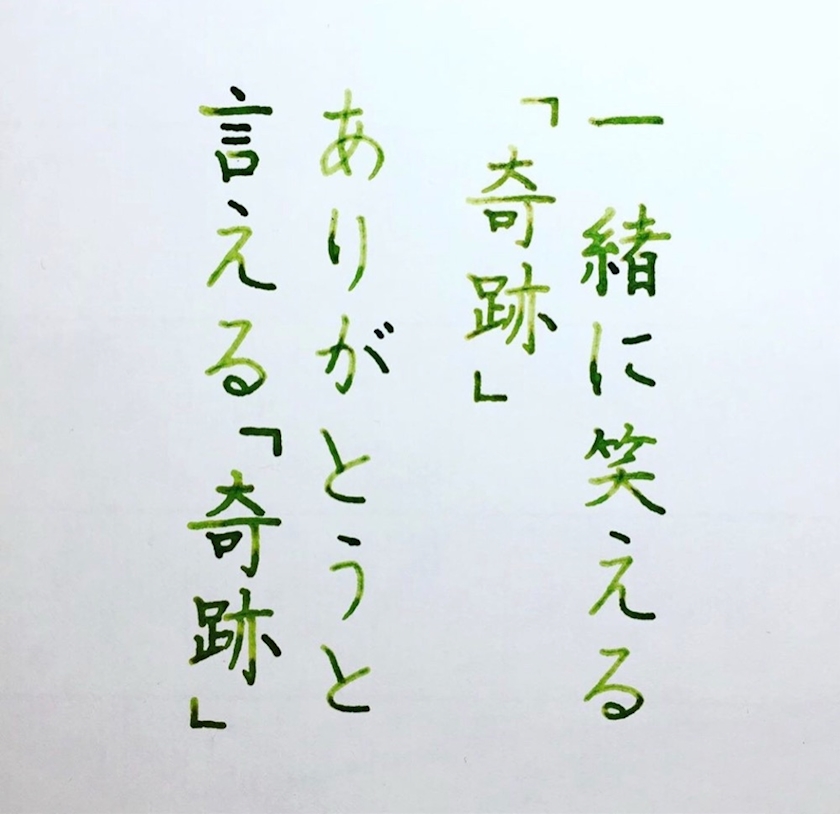 一緒に笑える
「奇跡」
ありがとうと
言える「奇跡」